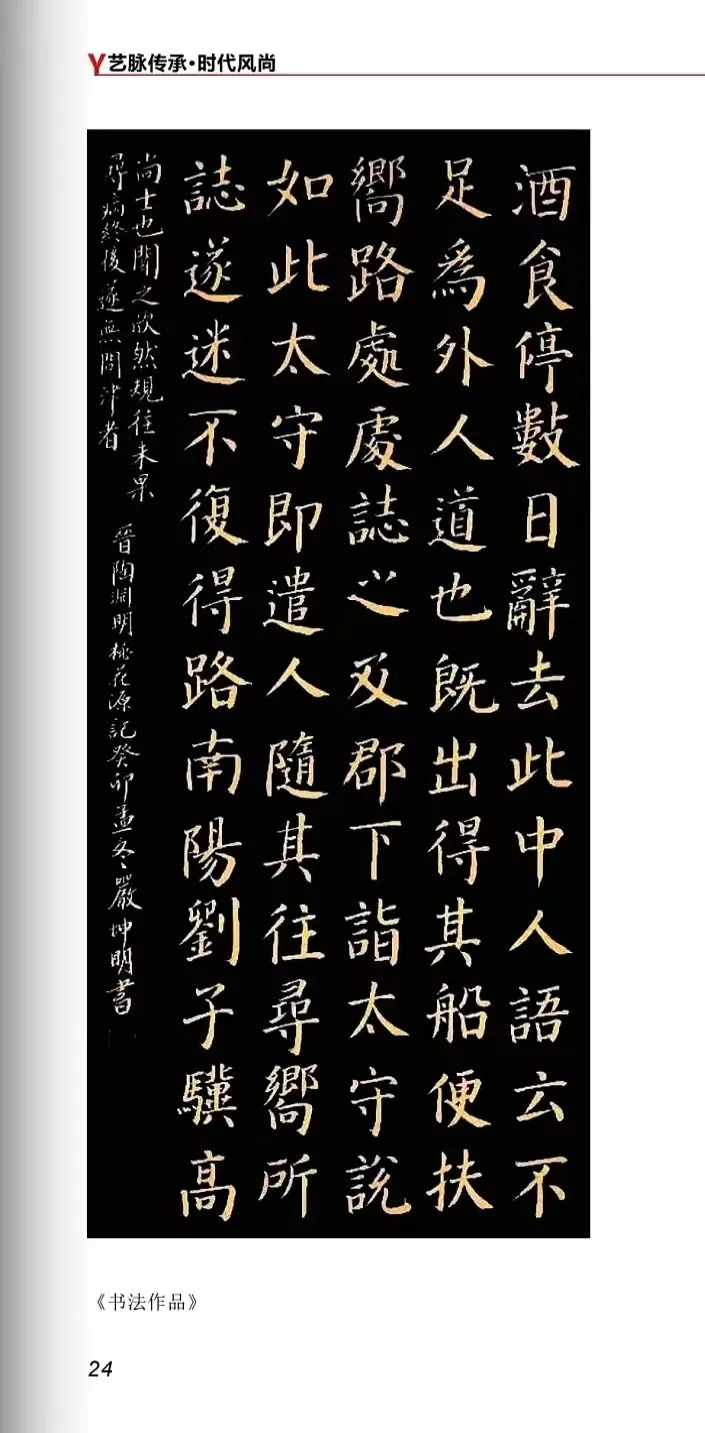 艺脉传承·时代风尚
酒食停數日辭去此中人語云不
足為外人道也既出得其船便扶
嚮路處處誌之及郡下詣太守說
如此太守即遣人隨其往尋嚮所
誌遂迷不復得路南陽劉子驥高
尚士也聞之欣然規往未果
尋病終後遂無問津者
晉陶淵明桃花源記癸卯孟冬嚴坤明書
《书法作品》
24